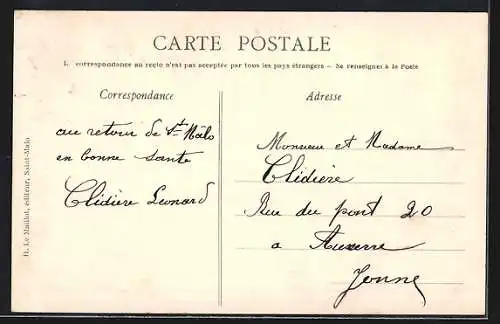 CARTE POSTALE
La correspondance au recto n'est pas acceptée par tous les pays étrangers – Se renseigner à la Poste
Correspondance
au retour de St Mâlo
en bonne santé
Clidière Leonard
Adresse
Monsieur et Madame
Clidière
Rue du pont 20
a Auxerre
Yonne
H. Le Maillot, éditeur, Saint-Malo